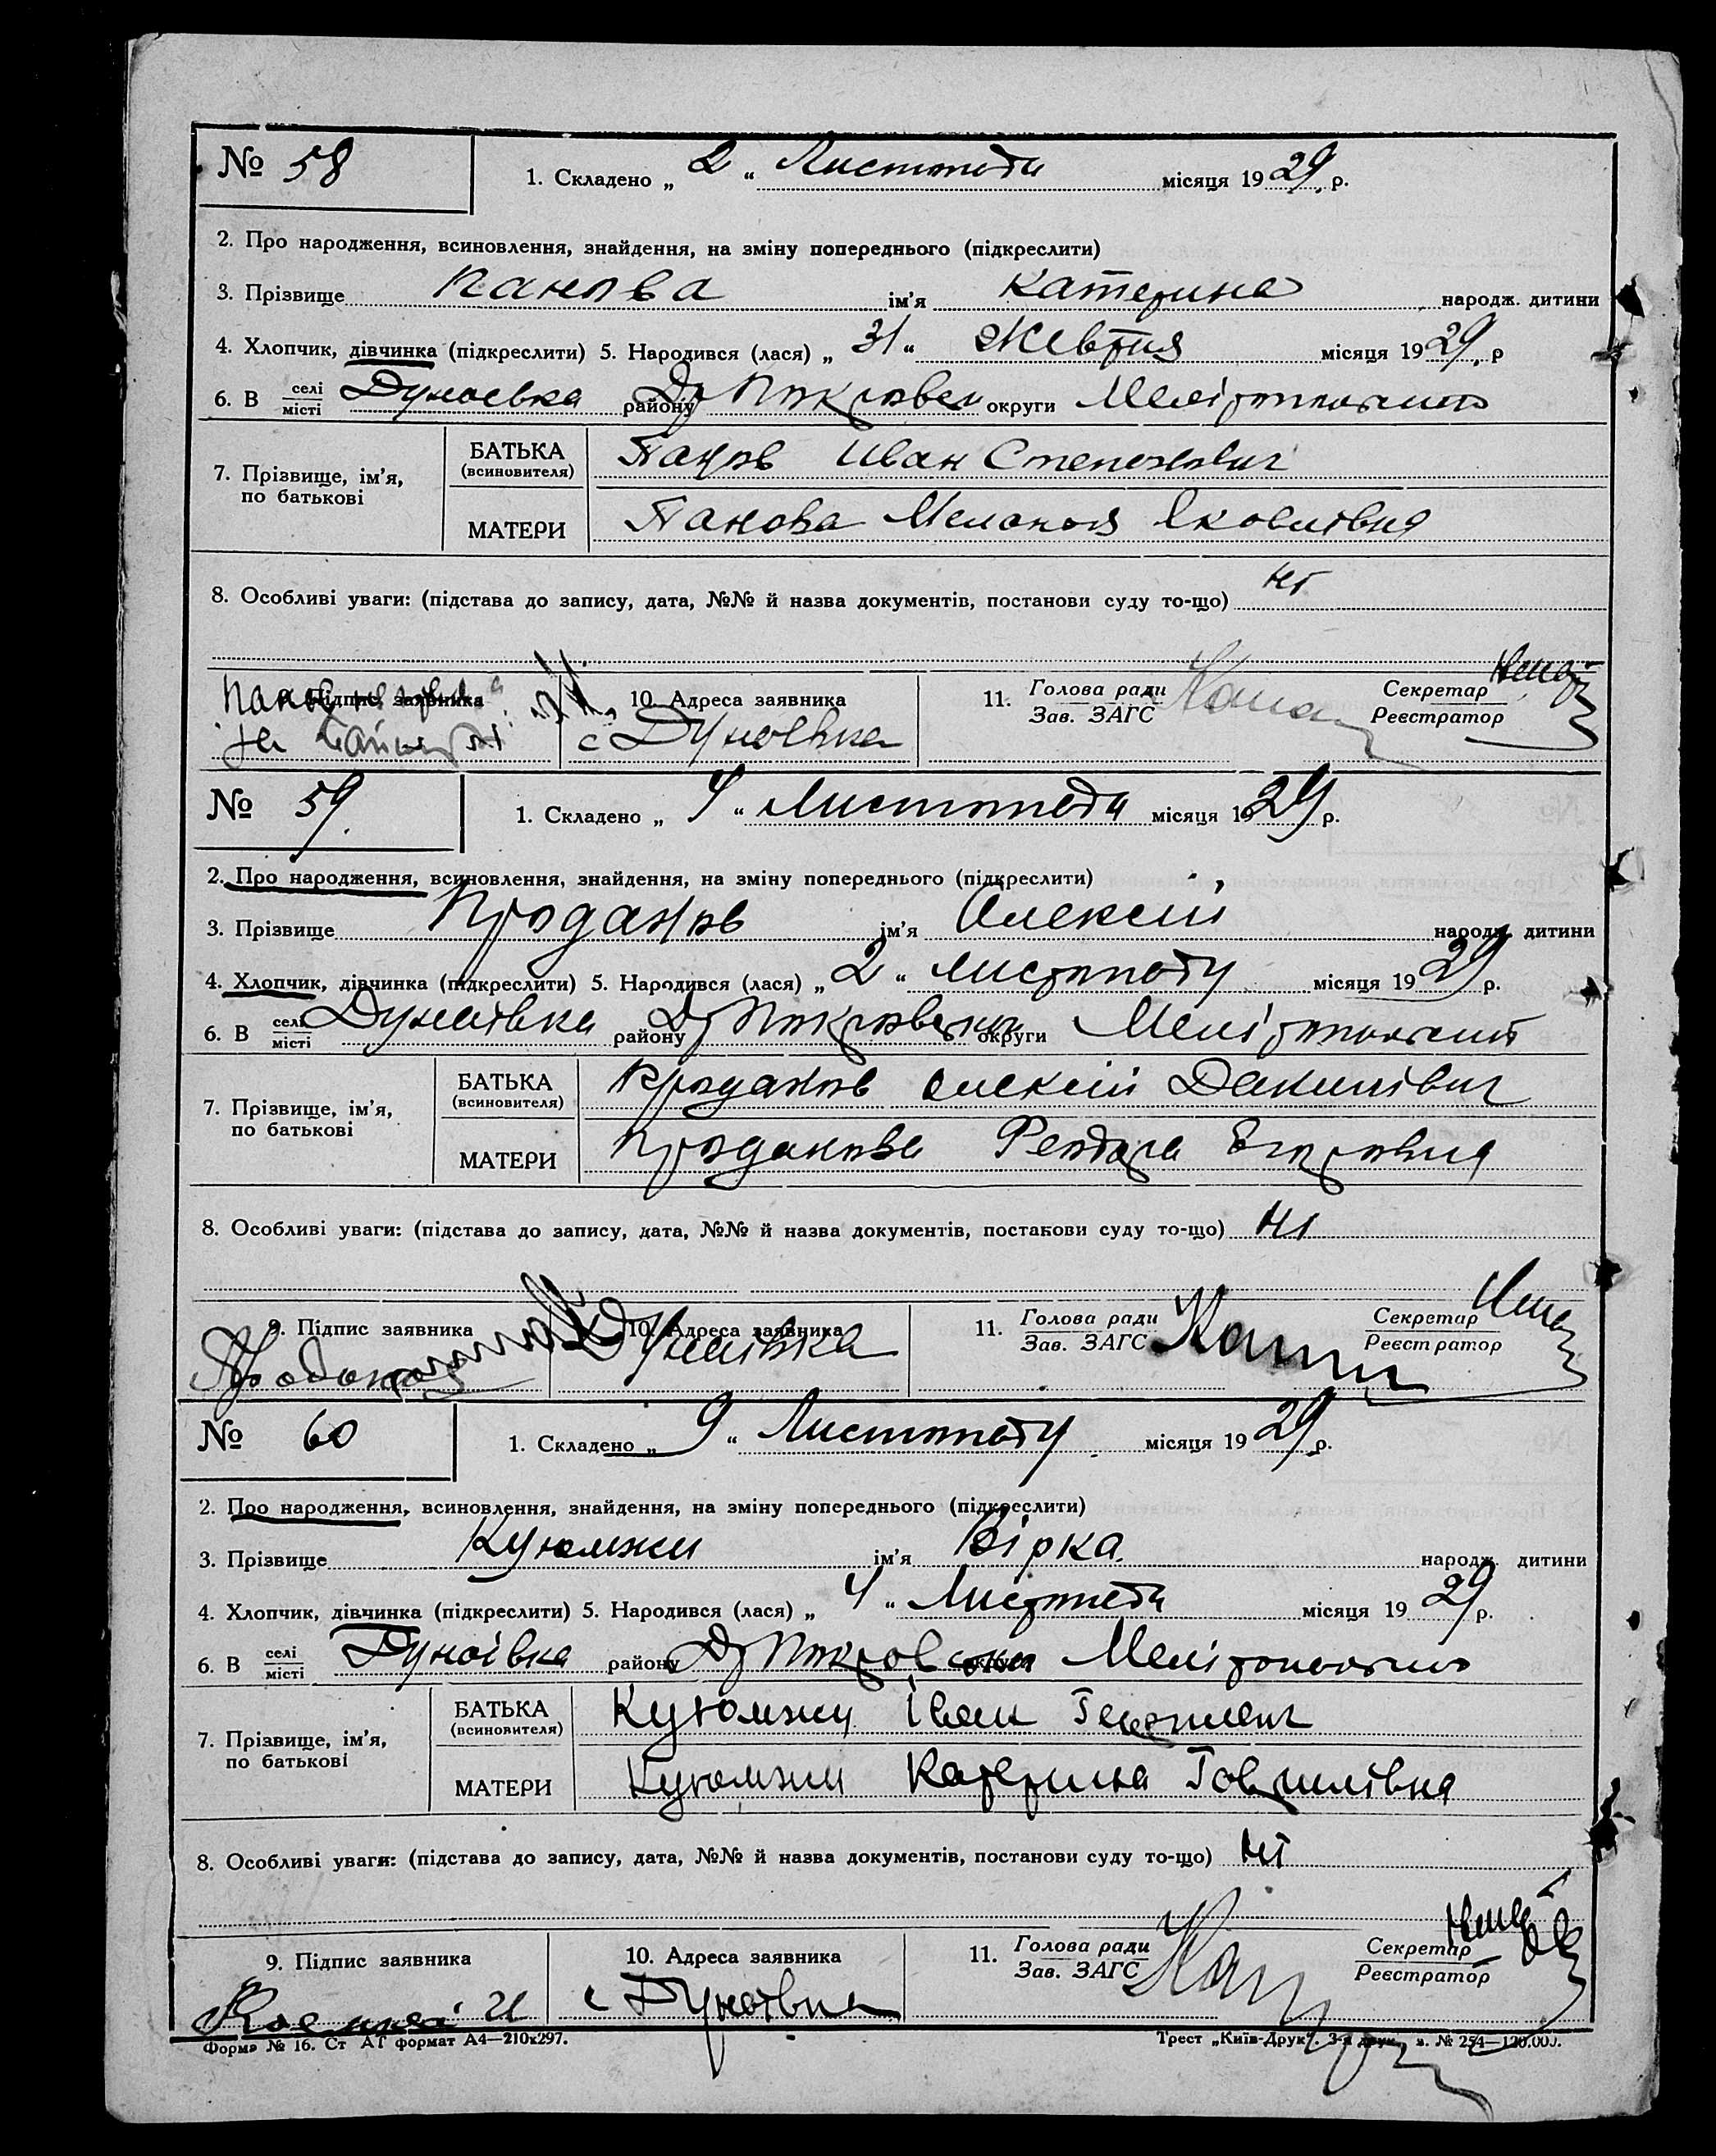 № 58
1. Складено „ 2 “ Листопада місяця 1929 р.
2. Про народження, всиновлення, знайдення, на зміну попереднього (підкреслити)
3. Прізвище Панова ім’я Катерина народж. дитини
4. Хлопчик, дівчинка (підкреслити) 5. Народився (лася) „ 31 “ Жовтня місяця 1929 р
6. В селі місті Дунаевка району округи
7. Прізвище, ім’я, по батькові
БАТЬКА (всиновителя) Панов Иван Степанович
МАТЕРИ Панова Мелания Яковлівна
8. Особливі уваги: (підстава до запису, дата, №№ й назва документів, постанови суду то-що) ні
9. Підпис заявника
10. Адреса заявника
с Дунаевка
11. Голова ради Зав. ЗАГС
Секретар Реєстратор
№ 59
1. Складено „ 4 “ Листопада місяця 1929 р.
2. Про народження, всиновлення, знайдення, на зміну попереднього (підкреслити)
3. Прізвище Проданов ім’я Олексій народж. дитини
4. Хлопчик, дівчинка (підкреслити) 5. Народився (лася) „ 2 “ листопаду місяця 1929 р.
6. В селі місті Дунаївка району округи
7. Прізвище, ім’я, по батькові
БАТЬКА (всиновителя) Проданов Олексій Данилівич
МАТЕРИ Проданова Феодора Егоровна
8. Особливі уваги: (підстава до запису, дата, №№ й назва документів, постанови суду то-що) ні
9. Підпис заявника
10. Адреса заявника
Дунаївка
11. Голова ради Зав. ЗАГС
Секретар Реєстратор
№ 60
1. Складено „ 9 “ Листопаду місяця 1929 р.
2. Про народження, всиновлення, знайдення, на зміну попереднього (підкреслити)
3. Прізвище Куюмжи ім’я Вірка народж. дитини
4. Хлопчик, дівчинка (підкреслити) 5. Народився (лася) „ 4 “ Листопада місяця 1929 р.
6. В селі місті Дунаівка району
7. Прізвище, ім’я, по батькові
БАТЬКА (всиновителя) Куюмжи Іван
МАТЕРИ Куюмжи Катерина Гаврилівна
8. Особливі уваги: (підстава до запису, дата, №№ й назва документів, постанови суду то-що) ні
9. Підпис заявника
10. Адреса заявника
с Дунаівка
11. Голова ради Зав. ЗАГС
Секретар Реєстратор
Форма № 16. Ст АГ формат А4—210х297.
Трест „Київ-Друк“. 3-я друк. з. № 254—120.000.